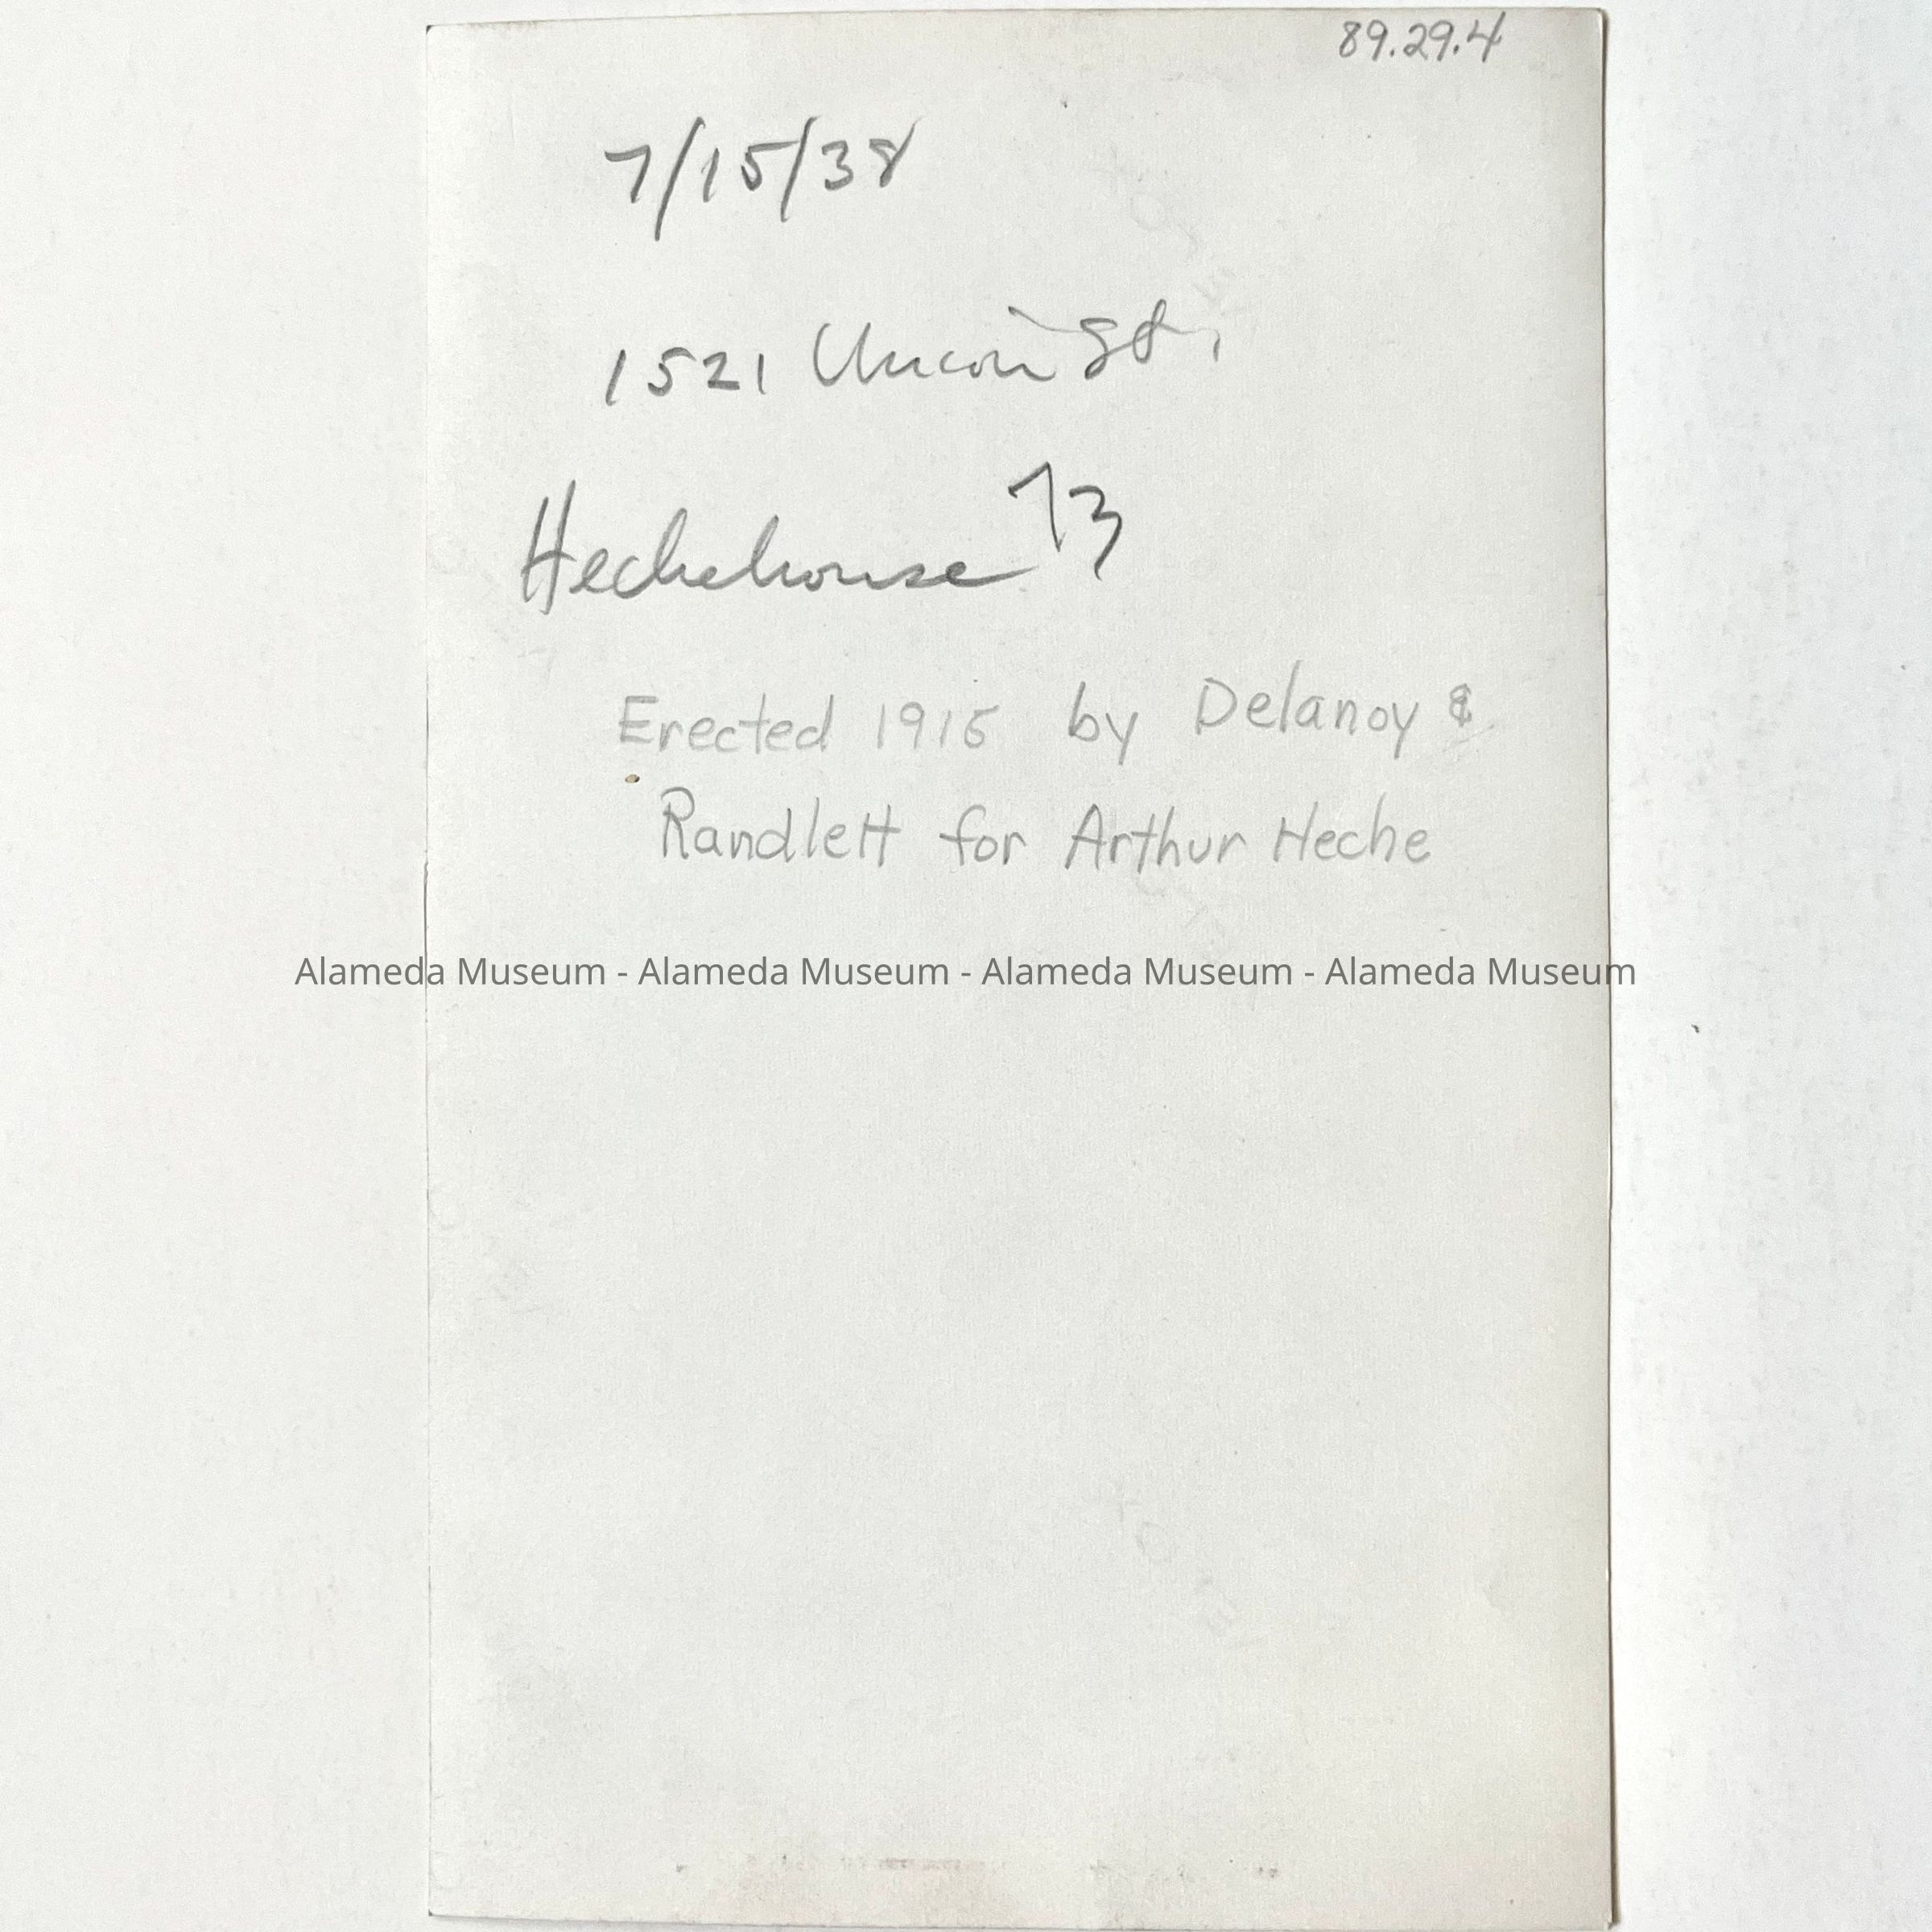 89.29.4
7/15/38
1521 Union St.
Heche house 73
Erected 1915 by Delanoy &
Randlett for Arthur Heche
Alameda Museum - Alameda Museum - Alameda Museum - Alameda Museum